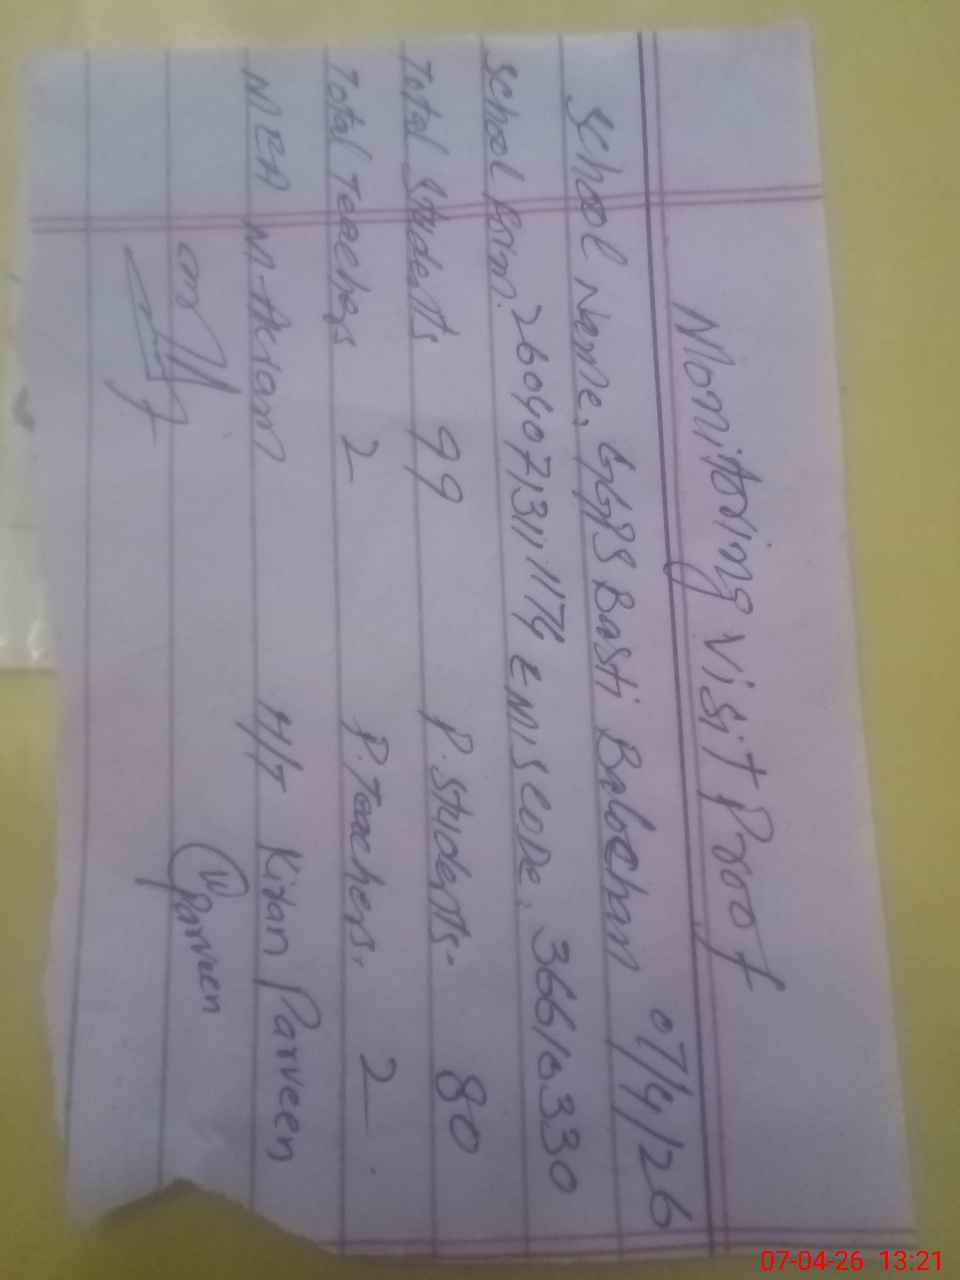 Monitoring Visit Proof
07/4/26
School Name. GGPS Basti Balochan
EMIS CODE. 36610330
Total Students 99 P. Students. 80
Total Teachers 2 P. Teachers. 2
MEA M-Akram H/T Kiran Parveen
Parveen
07-04-26 13:21